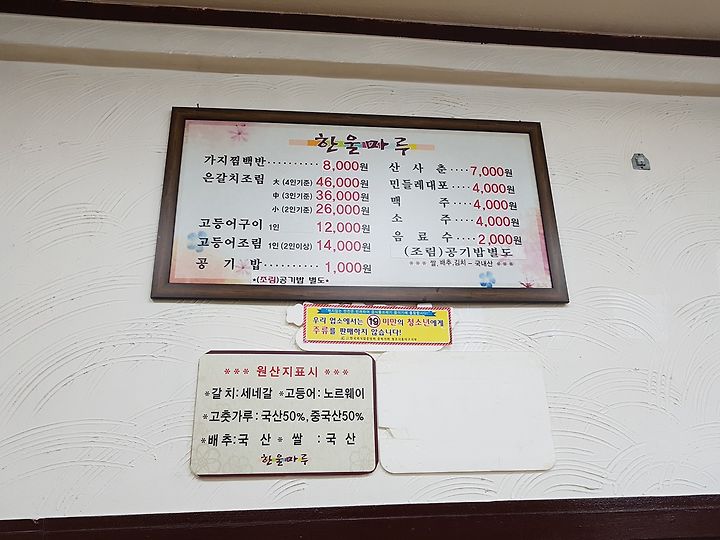 한울마루
가지찜백반 .......... 8,000원
은갈치조림 大 (4인기준) 46,000원
中 (3인기준) 36,000원
小 (2인기준) 26,000원
고등어구이 1인 12,000원
고등어조림 1인 (2인이상) 14,000원
공 기 밥 .......... 1,000원
*(조림)공기밥 별도*
산 사 춘 .... 7,000원
민들레대포 .... 4,000원
맥 주 .... 4,000원
소 주 .... 4,000원
음 료 수 .... 2,000원
(조림)공기밥별도
*** 쌀,배추,김치 - 국내산 ***
우리 업소에서는 19 미만의 청소년에게
주류를 판매하지 않습니다!
*** 원산지표시 ***
*갈치:세네갈 *고등어:노르웨이
*고춧가루:국산50%,중국산50%
*배추:국 산 * 쌀 : 국 산
한울마루